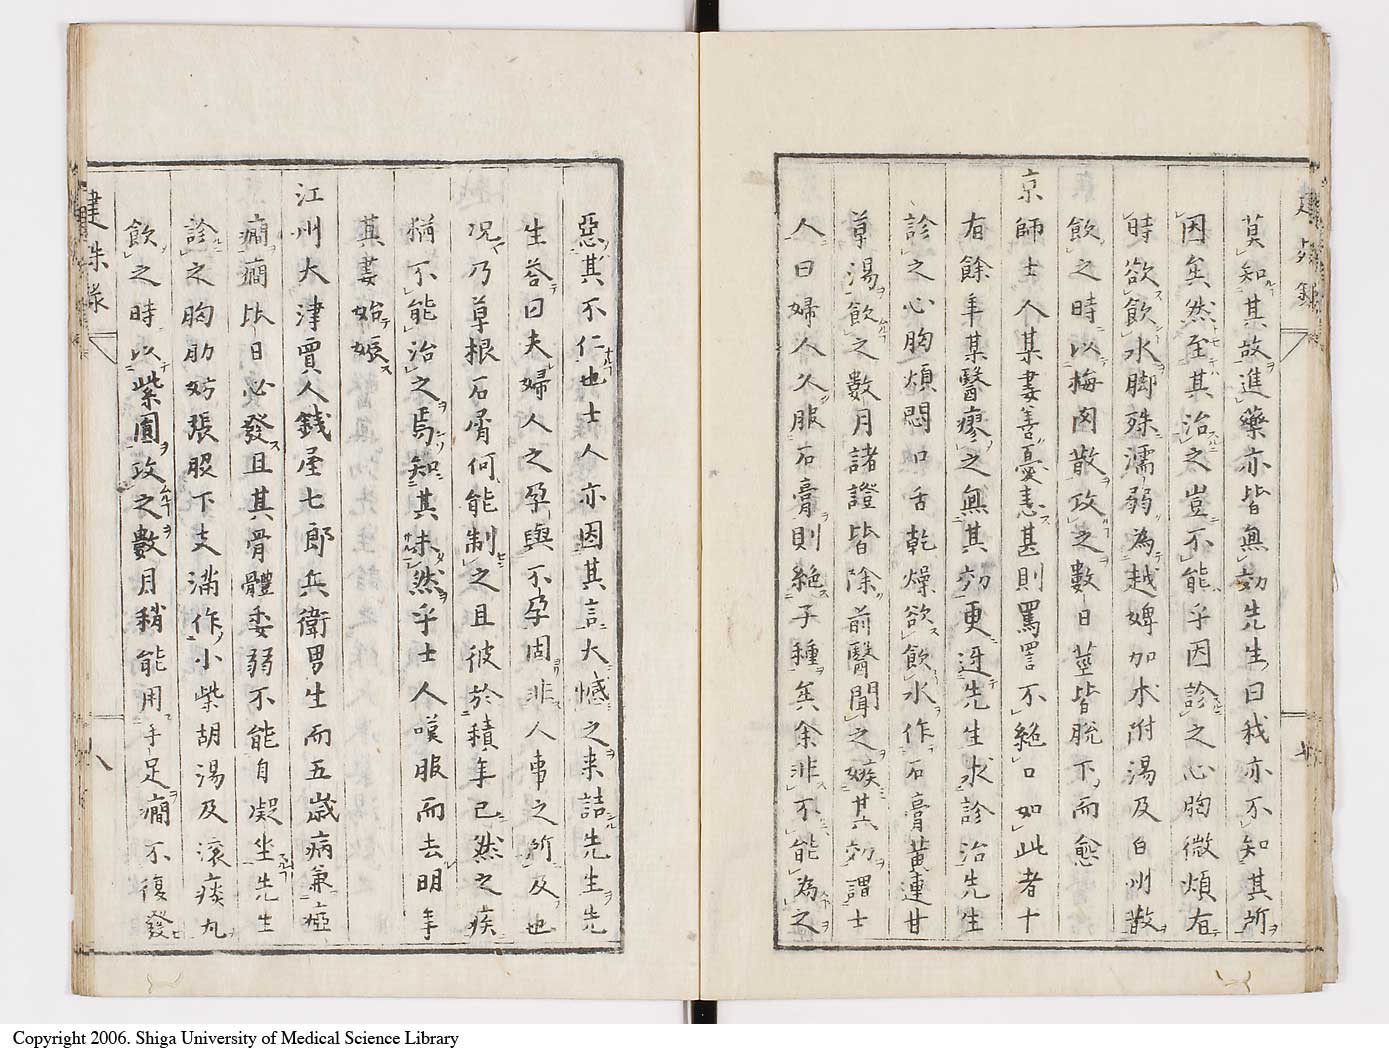 莫知其故進藥亦皆無効先生曰我亦不知其所
因矣然至其治之豈不能乎因診之心胸微煩有
時欲飲水脚殊濡弱為越婢加朮附湯及白州散
飲之時以梅肉散攻之數日莖皆脫下而愈
京師士人某妻善憂恚甚則罵詈不絶口如此者十
有餘年某醫療之無其効更迓先生求診治先生
診之心胸煩悶口舌乾燥欲飲水作石膏黃連甘
草湯飲之數月諸證皆除前醫聞之嫉其効謂士
人曰婦人久服石膏則絶子種矣余非不能為之
惡其不仁也士人亦因其言大憾之来詰先生先
生荅曰夫婦人之孕與不孕固非人事之所及也
况乃草根石屑何能制之且彼於積年已然之疾
猶不能治之焉知其未然乎士人嘆服而去明年
其妻始娠
江州大津賈人錢屋七郎兵衛男生而五歳病兼瘂
癇癇比日必發且其骨體委弱不能自凝坐先生
診之胸肋妨張腹下支滿作小柴胡湯及滾痰丸
飲之時以紫圓攻之數月稍能用手足癇不復發
建殊録
八